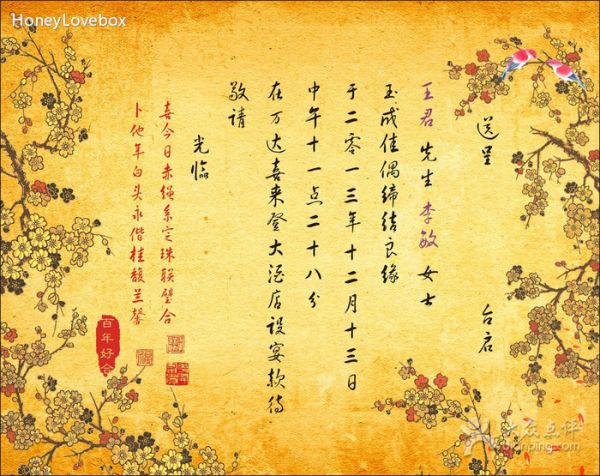 HoneyLovebox
送呈 台启
王君 先生 李敏 女士
玉成佳偶缔结良缘
于二零一三年十二月十三日
中午十一点二十八分
在万达喜来登大酒店设宴款待
敬请
光临
喜今日赤绳系定珠联璧合
卜他年白头永偕桂馥兰馨
百年好合
大众点评
dianping.com